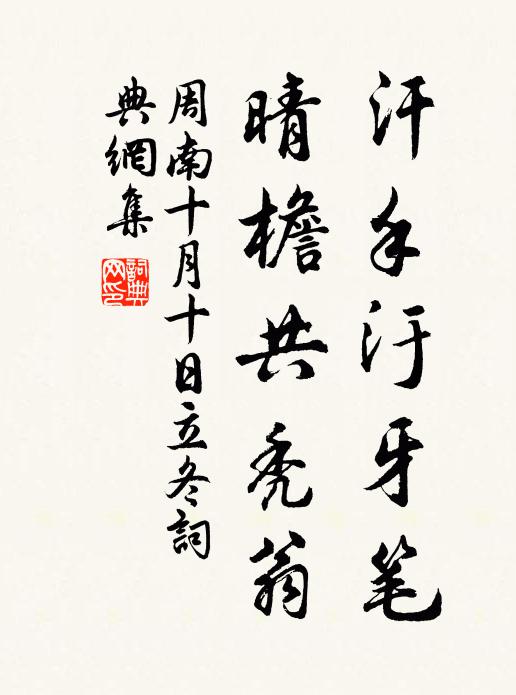 汗手汙牙笔
晴檐共禿翁
周南十月十日立冬詞
典網集
詞典网印